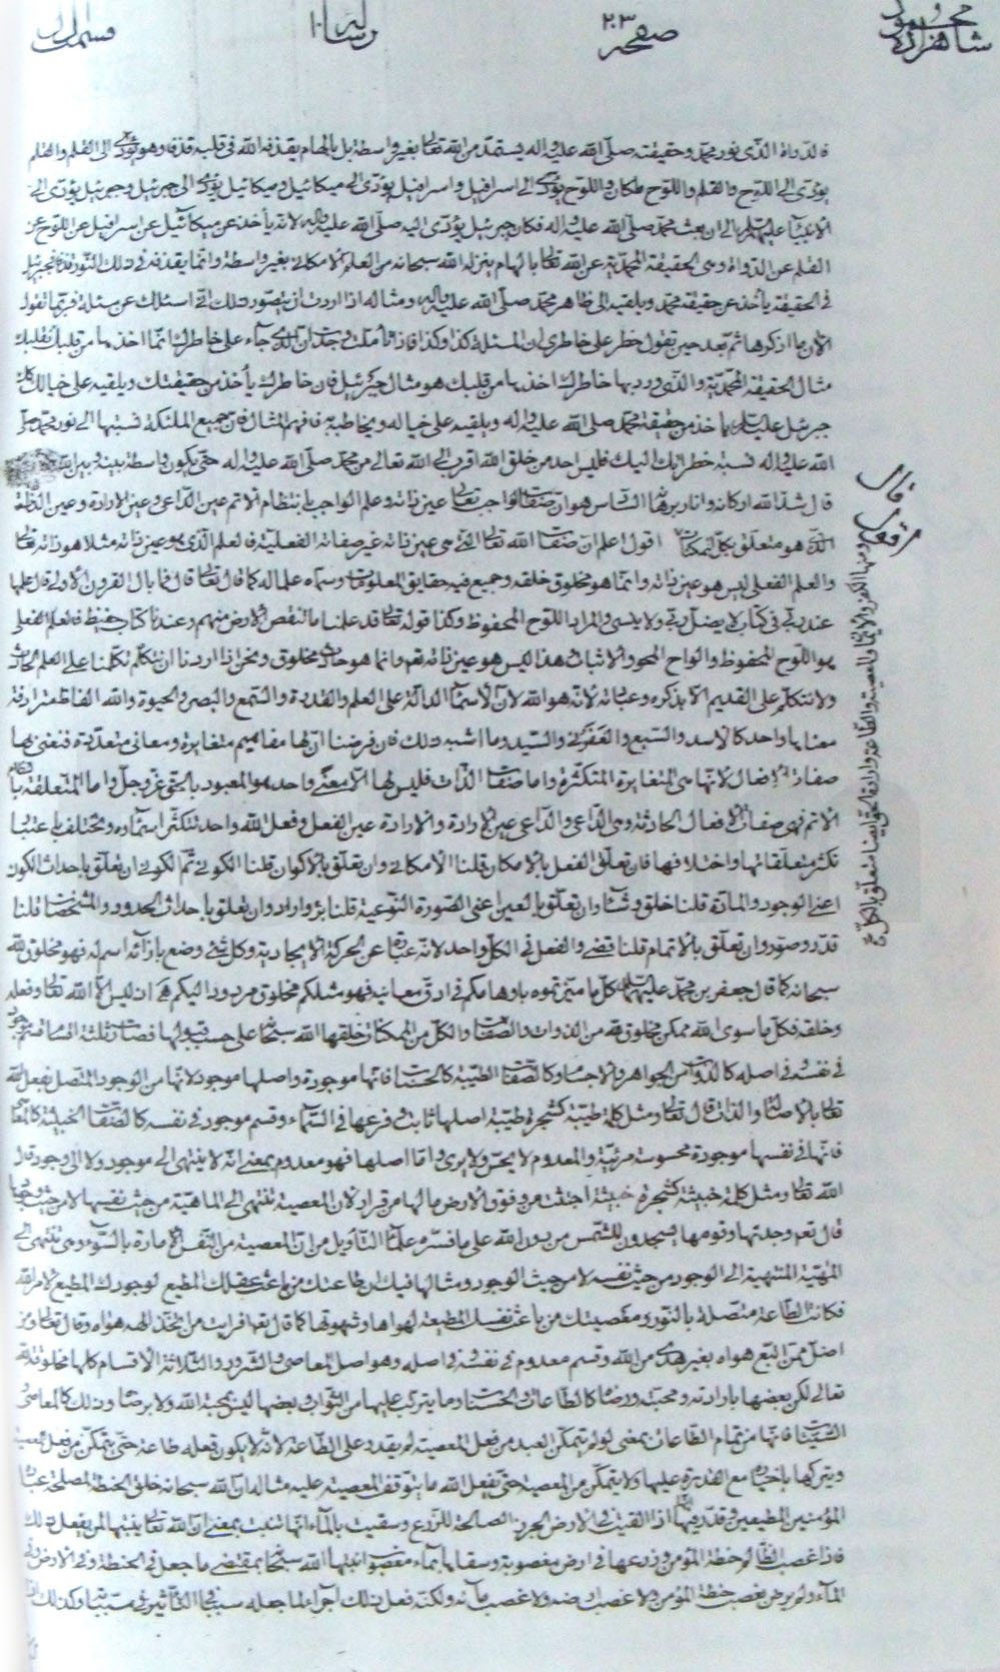 شاهزاده محمود صفحه ٢٠٣ رسالة ١٠
فالدواة الذى نور محمد وحقيقته صلى الله عليه واله يستمد من الله تعالى بغير واسطة بل بالهام يقذفه الله فى قلبه قذفا وهو يؤدى الى القلم والقلم
يؤدى الى اللوح والقلم واللوح ملكان واللوح يؤدى الى اسرافيل واسرافيل يؤدى الى ميكائيل وميكائيل يؤدى الى جبرئيل وجبرئيل يؤدى الى
الانبياء عليهم السلم الى ان بعث محمد صلى الله عليه واله فكان جبرئيل يؤدى اليه صلى الله عليه واله لانه يأخذ عن ميكائيل عن اسرافيل عن اللوح عن
القلم عن الدواة وهى الحقيقة المحمدية عن الله تعالى بالهام ينزله الله سبحانه من العلم الامكانى بغير واسطة وانما يقذفه فى ذلك النور قذفا فجبرئيل
فى الحقيقة يأخذ عن حقيقة محمد ويلقيه الى ظاهر محمد صلى الله عليه واله ومثاله اذا اردت ان يتصور ذلك انى اسئلك عن مسئلة فربما تقول
الان ما اذكرها ثم بعد حين تقول خطر على خاطرى ان المسئلة كذا وكذا فاذا تأملت وجدت ان الذى جاء على خاطرك انما اخذها من قلبك فقلبك
مثال الحقيقة المحمدية والذى ورد بها خاطرك اخذها من قلبك هو مثال جبرئيل فان خاطرك يأخذ من حقيقتك ويلقيه على خيالك كذلك
جبرئيل عليه السلم يأخذ من حقيقة محمد صلى الله عليه واله ويلقيه على خياله ويخاطبه فافهم المثال فان جميع الملئكة نسبتها الى نور محمد صلى
الله عليه واله نسبة خطراتك اليك فليس احد من خلق الله اقرب الى الله تعالى من محمد صلى الله عليه واله حتى يكون واسطة بينه وبين الله
قال شد الله اركانه وانار برهانه السادس هو ان صفات الواجب تعالى عين ذاته وعلم الواجب بانتظام الاتم عين الداعى وعين الارادة وعين
الذى هو متعلق بكل الممكنات اقول اعلم ان صفات الله تعالى التى هى عين ذاته غير صفاته الفعلية فالعلم الذى هو عين ذاته مثلا هو ذاته تعالى
والعلم الفعلى ليس هو عين ذاته وانما هو مخلوق خلقه وجميع فيه حقايق المعلومات وسماه علما له كما قال تعالى قال فما بال القرون الاولى قال علمها
عند ربى فى كتاب لا يضل ربى ولا ينسى والمراد اللوح المحفوظ وكذا قوله تعالى قد علمنا ما تنقص الارض منهم وعندنا كتاب حفيظ فالعلم الفعلى
هو اللوح المحفوظ والواح المحو والاثبات هذا ليس هو عين ذاته تعالى وانما هو حادث مخلوق ونحن اذا اردنا ان نتكلم تكلمنا على العلم الحادث
ولا نتكلم على القديم الا بذكره وعباته لانه هو الله لان الاسماء الدالة على العلم والقدرة والسمع والبصر والحيوة والله الفاظ مترادفة
معناها واحد كالاسد والسبع والغضنفر والسيد وما اشبه ذلك فان فرضنا ان لها مفاهيم متغايرة ومعانى متعددة فنعنى بها
صفات الافعال لانها هى المتغايرة المتكثرة واما صفات الذات فليس لها الا معنى واحد هو المعبود بالحق عز وجل واما المتعلقة بالنظام
الاتم فهى صفات الافعال الحادثة وهى الداعى والداعى عين الارادة والارادة عين الفعل وفعل الله واحد تتكثر اسماؤه وتختلف باعتبار
تكثر متعلقاتها واختلافها فان تعلق الفعل بالامكان قلنا الامكانى وان تعلق بالاكوان قلنا الكونى ثم الكونى ان تعلق باحداث الكون
اعنى الوجود والمادة قلنا خلق وشاء وان تعلق بالعين اعنى الصورة النوعية قلنا برء واراد وان تعلق باحداث الحدود والمشخصات قلنا
قدر وصور وان تعلق بالاتمام قلنا قضى والفعل فى الكل واحد لانه عبارة عن الحركة الايجادية وكل شئ وضع بازائه اسم له فهو مخلوق لله
سبحانه كما قال جعفر بن محمد عليهما السلم كل ما ميزتموه باوهامكم فى ادق معانيه فهو مثلكم مخلوق مردود اليكم هى ان ليس الا الله تعالى وفعله
وخلقه فكل ما سوى الله ممكن مخلوق لله من الذوات والصفات والكل من الممكنات خلقها الله سبحانه على حسب قبولها فصارت ثلثة اقسام قسم موجود
فى نفسه وفى اصله كالذوات من الجواهر والاجسام وكالصفات الطيبة كالحسنات فانها موجودة واصلها موجود لانها من الوجود المتصل بفعل الله
تعالى بالاصالة والذات قال تعالى ومثل كلمة طيبة كشجرة طيبة اصلها ثابت وفرعها فى السماء وقسم موجود فى نفسه كالصفات الخبيثة كالمعاصى
فانها فى نفسها موجودة محسوسة مرئية والمعدوم لا يحس ولا يرى واما اصلها فهو معدوم بمعنى انه لا ينتهى الى موجود ولا الى وجود قال
الله تعالى ومثل كلمة خبيثة كشجرة خبيثة اجتثت من فوق الارض ما لها من قرار لان المعصية تنتهى الى الماهية من حيث نفسها لا من حيث وجودها
قال تعالى وجدتها وقومها يسجدون للشمس من دون الله على ما فسره علماء التأويل من ان المعصية من النفس الامارة بالسوء وهى تنتهى الى
المهية المنتهية الى الوجود من حيث نفسه لا من حيث الوجود ومثالها فيك ان طاعتك من باعث عقلك المطيع لوجودك المطيع لامر الله
فكانت الطاعة متصلة بالنور ومعصيتك من باعث نفسك المطيعة لهواها وشهوتها كما قال تعالى افرايت من اتخذ الهه هواه وقال تعالى ومن
اضل ممن اتبع هواه بغير هدى من الله وقسم معدوم فى نفسه وفى اصله وهو اصل المعاصى والشرور والثلاثة الاقسام كلها مخلوقة لله
تعالى لكن بعضها بارادته ومحبته ورضاه كالطاعات والحسنات وما يترتب عليها من الثواب وبعضها ليس بمحبة الله ولا برضاه وذلك كالمعاصى
السيئات فانها من تمام الطاعات بمعنى لو لم يتمكن العبد من فعل المعصية لم يقدر على الطاعة لانه لا يكون فعله طاعة حتى يتمكن من فعل المعصية
ويتركها باختياره مع القدرة عليها ولا يتمكن من المعصية حتى يفعل الله ما يتوقف المعصية عليه مثاله ان الله سبحانه خلق الحنطة لمصلحة عباده
المؤمنين المطيعين وقدر فيها انها اذا القيت فى الارض الجرز الصالحة للزرع وسقيت بالماء انها تنبت بمعنى ان الله تعالى ينبتها لمن يفعل ذلك
فاذا غصب الظالم حنطة المؤمن وزرعها فى ارض مغصوبة وسقاها بماء مغصوب انبتها الله سبحانه بمقتضى ما جعل فى الحنطة وفى الارض وفى
الماء ولم يرض بغصب حنطة المؤمن ولا غصب ارضه ولا غصب مائه ولكنه فعل ذلك اجراء لما جعله سببا التأثير فى مسبباتها وكذلك